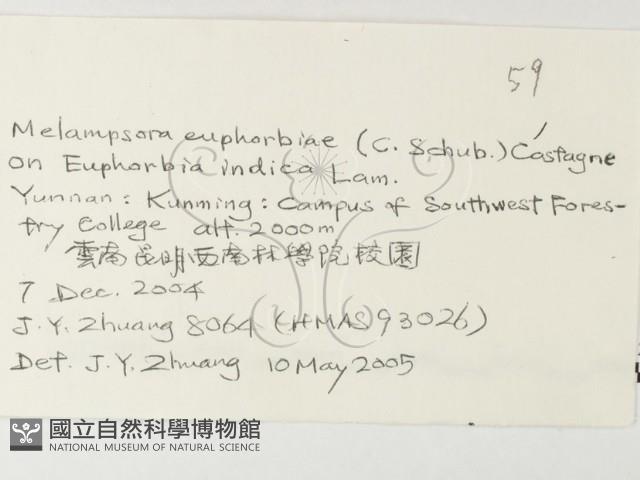 59
Melampsora euphorbiae (C. Schub.) Castagne
on Euphorbia indica Lam.
Yunnan: Kunming: Campus of Southwest Fores-
try College alt. 2000m
雲南昆明西南林學院校園
7 Dec. 2004
J.Y. Zhuang 8064 (HMAS 93026)
Det. J.Y. Zhuang 10 May 2005
國立自然科學博物館
NATIONAL MUSEUM OF NATURAL SCIENCE